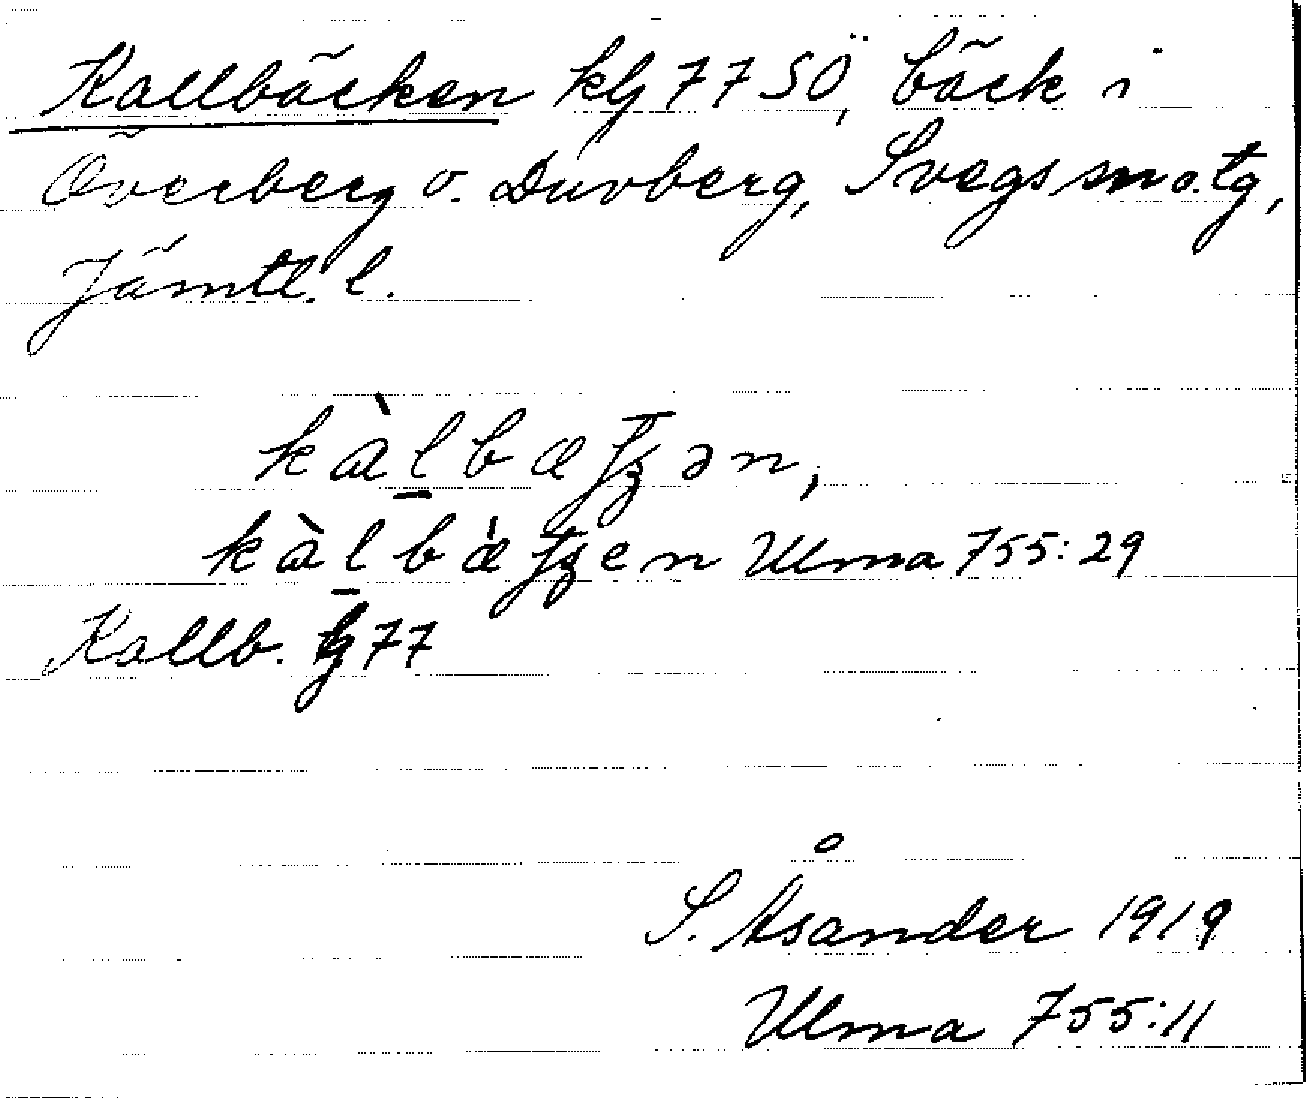 Kallbäcken kg 77 SÖ, bäck i
Överberg o. Duvberg, Svegs sn o. tg,
Jämtl. l.
kàl̠bæʈʂən,
kàl̠bæ̀ʈʂen Ulma 755:29
Kallb. kg 77
S. Åsander 1919
Ulma 755:11